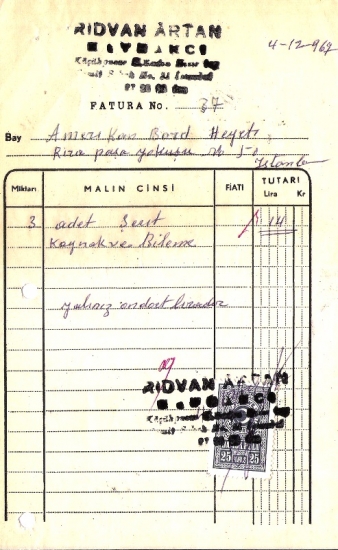 RIDVAN ARTAN
4-12-967
FATURA No. 37
Bay Amerikan Bord Heyeti
Rıza paşa yokuşu No 50
İstanbul
Miktarı MALIN CİNSİ FİATI TUTARI
Lira Kr
3 adet Şerit 14
Kaynak ve Bileme
yalnız ondört liradır
RIDVAN ARTAN
25 25